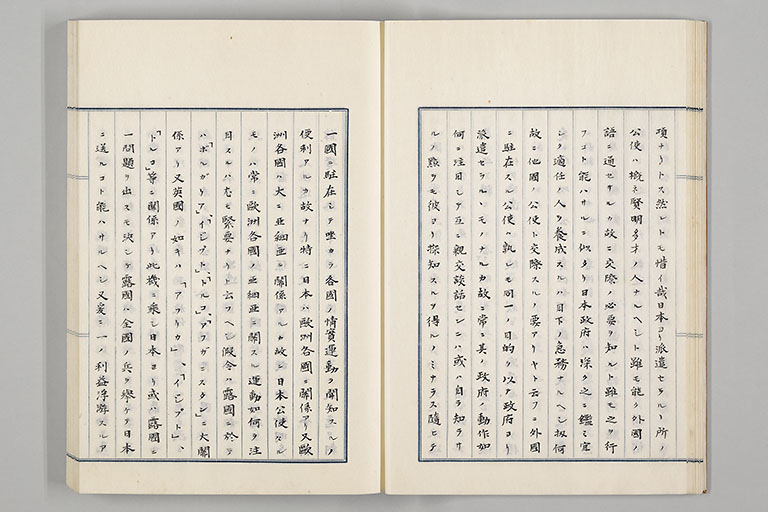 項ナリトス然レトモ惜イ哉日本ヨリ派遣セラルヽ所ノ
公使ハ概子賢明多才ノ人ナルヘシト雖モ能ク外國ノ
語ニ通セサルカ故ニ交際ノ必要ヲ知ルト雖モ之ヲ行
フコト能ハサルニ似タリ日本政府ハ深ク之ニ鑑ミ宜
シク適任ノ人ヲ養成スルハ目下ノ急務ナルヘシ扨何
故ニ他國ノ公使ト交際スルノ要アリヤト云フニ外國
ニ駐在スル公使ハ孰レモ同一ノ目的ヲ以テ政府ヨリ
派遣セラルヽモノナルカ故ニ常ニ其ノ政府ノ動作如
何ニ注目シテ互ニ親交談話セシニハ或ハ自ラ知ラサ
ルノ點ヲモ彼ヨリ探知スルヲ得ルノミナラス隨ヒテ
一國ニ駐在シテ坐カラ各國ノ情實運動ヲ聞知スルノ
便利アルカ故ナリ特ニ日本ハ歐洲各國ニ關係アリ又歐
洲各國ハ大ニ亞細亞ニ關係アルカ故ニ日本公使タル
モノハ常ニ歐洲各國ノ亞細亞ニ關スル運動如何ヲ注
目スルハ尤モ緊要ナリト云フヘシ假令ハ露國ニ於テ
ハ「ボルガリア」、「イジプト」、「トルコ」、「アフガニスタン」ニ大關
係アリ又英國ノ如キハ「アフリカ」、「イジプト」、
「トルコ」等ニ關係アリ此機ニ乘シ日本ヨリ或ハ露國ニ
一問題ヲ出スモ決シテ露國ハ全國ノ兵ヲ擧ケテ日本
ニ送ルコト能ハサルヘシ又爰ニ一ノ利益浮游スルア